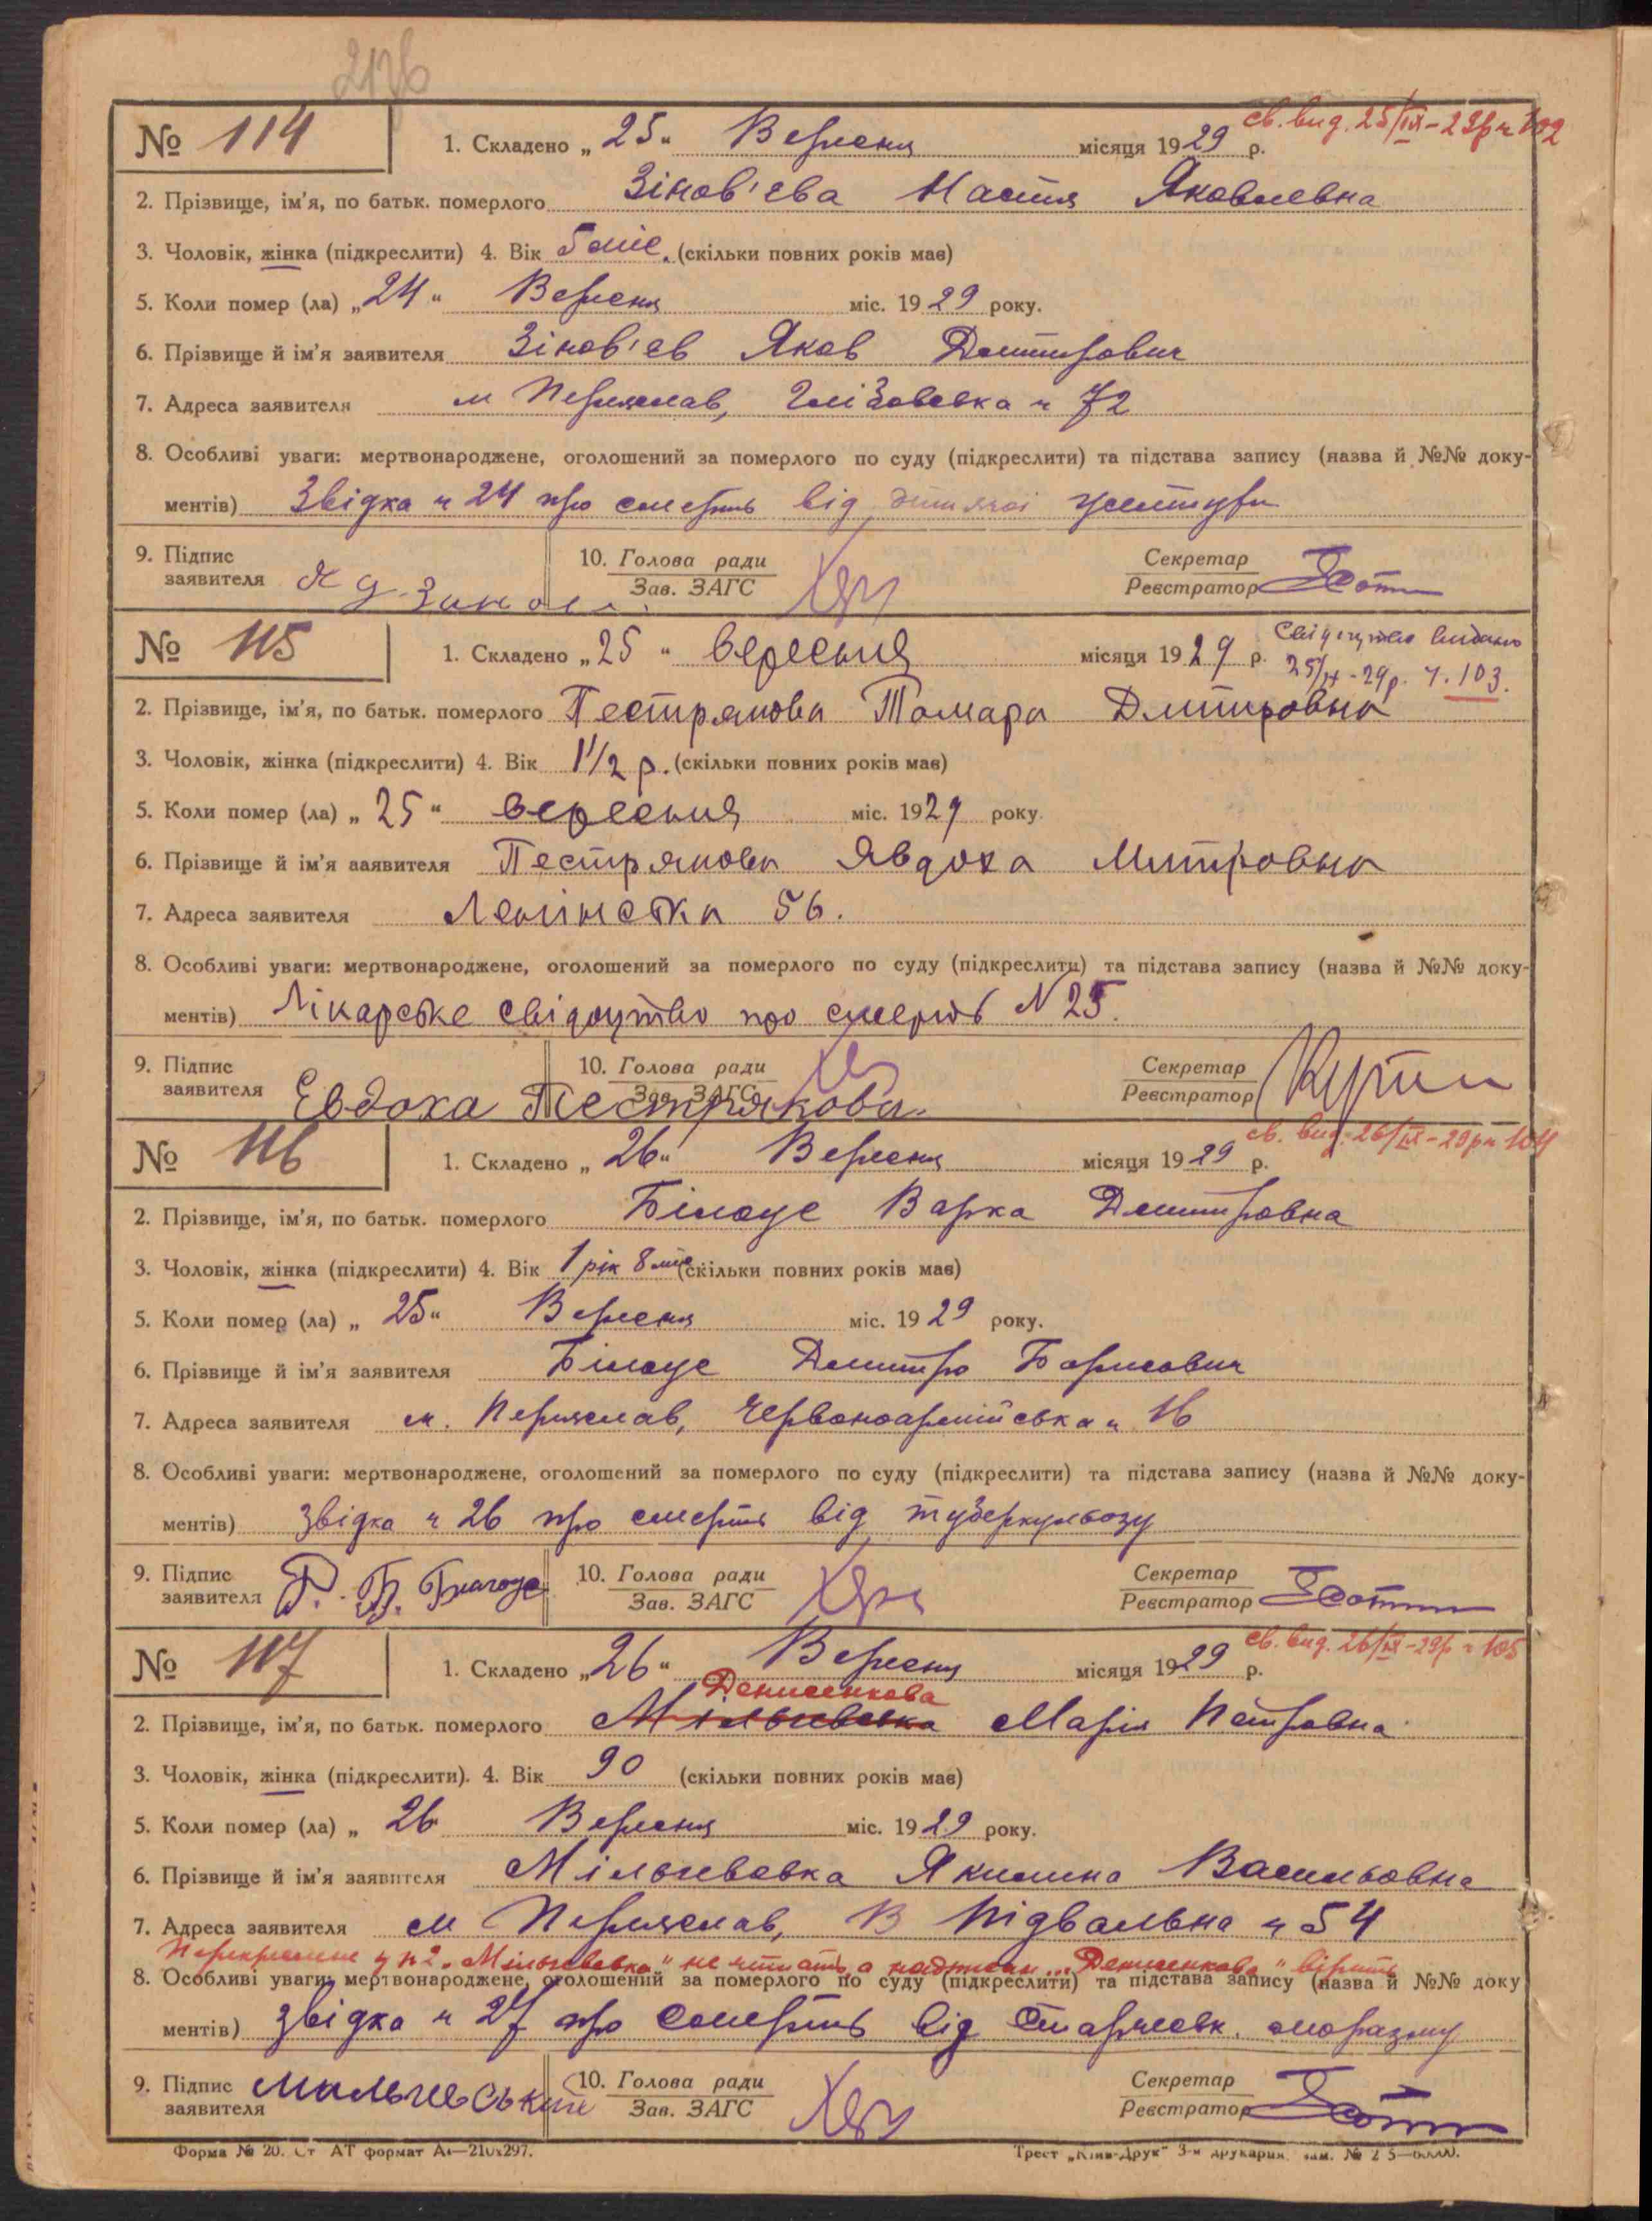 276
№ 114 1. Складено „25“ Вересня місяця 1929 р. св. вид. 25/IX-29р ч 102
2. Прізвище, ім'я, по батьк. померлого Зінов'єва Настя Яковлевна
3. Чоловік, жінка (підкреслити) 4. Вік 5 міс. (скільки повних років мав)
5. Коли помер (ла) „24“ Вересня міс. 1929 року.
6. Прізвище й ім'я заявителя Зінов'єв Яков Дмитрович
7. Адреса заявителя м Переяслав, ч 72
8. Особливі уваги: мертвонароджене, оголошений за померлого по суду (підкреслити) та підстава запису (назва й №№ доку-
ментів) Звідка ч 24 про смерть від дитячої
9. Підпис заявителя 10. Голова ради Зав. ЗАГС Секретар Реєстратор
№ 115 1. Складено „25“ вересня місяця 1929 р. Свідоцтво видано
25/IX-29р. ч. 103.
2. Прізвище, ім'я, по батьк. померлого Пестрякова Тамара Дмитровна
3. Чоловік, жінка (підкреслити) 4. Вік 1 1/2 р. (скільки повних років мав)
5. Коли помер (ла) „25“ вересня міс. 1929 року.
6. Прізвище й ім'я заявителя Пестрякова Явдоха Митровна
7. Адреса заявителя Ленінська 56.
8. Особливі уваги: мертвонароджене, оголошений за померлого по суду (підкреслити) та підстава запису (назва й №№ доку-
ментів) Лікарське свідоцтво про смерть N 25.
9. Підпис заявителя Евдоха Пестрякова 10. Голова ради Зав. ЗАГС Секретар Реєстратор
№ 116 1. Складено „26“ Вересня місяця 1929 р. св. вид. 26/IX-29р ч 104
2. Прізвище, ім'я, по батьк. померлого Білоус Варка Дмитровна
3. Чоловік, жінка (підкреслити) 4. Вік 1 рік 8 міс (скільки повних років мав)
5. Коли помер (ла) „25“ Вересня міс. 1929 року.
6. Прізвище й ім'я заявителя Білоус Дмитро Борисович
7. Адреса заявителя м. Переяслав, Червоноармійська ч 16
8. Особливі уваги: мертвонароджене, оголошений за померлого по суду (підкреслити) та підстава запису (назва й №№ доку-
ментів) Звідка ч 26 про смерть від туберкульозу
9. Підпис заявителя 10. Голова ради Зав. ЗАГС Секретар Реєстратор
№ 117 1. Складено „26“ Вересня місяця 1929 р. св. вид. 26/IX-29р ч 105
Денисенкова
2. Прізвище, ім'я, по батьк. померлого Мільчевська Марія Петровна
3. Чоловік, жінка (підкреслити). 4. Вік 90 (скільки повних років мав)
5. Коли помер (ла) „26 Вересня міс. 1929 року.
6. Прізвище й ім'я заявителя Мільчевска Якилина Васильовна
7. Адреса заявителя м Переяслав, В Підвальна ч 54
Перекреслене у п 2 „Мільчевська“ не читать а надписан... „Денисенкова“ вірить
8. Особливі уваги: мертвонароджене, оголошений за померлого по суду (підкреслити) та підстава запису (назва й №№ доку
ментів) Звідка ч 27 про смерть від старческ. моразму
9. Підпис заявителя 10. Голова ради Зав. ЗАГС Секретар Реєстратор
Форма № 20. Ст АТ формат А4—210х297. Трест „Київ-Друк“ 3-я друкарня.